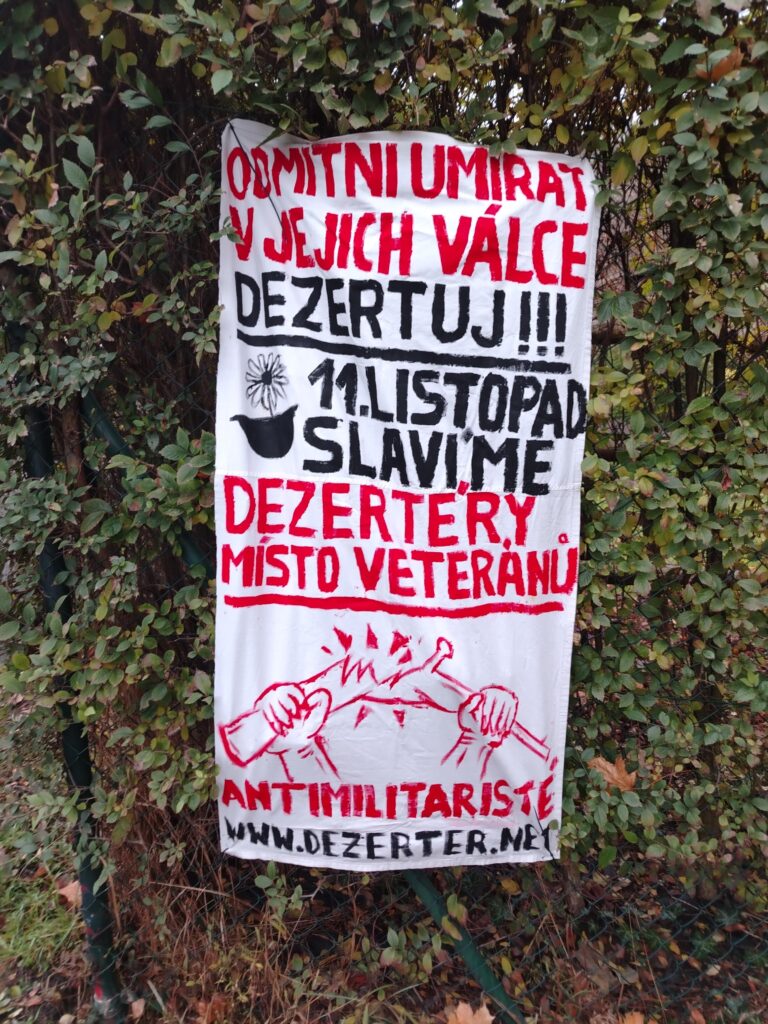 ODMÍTNI UMÍRAT
V JEJICH VÁLCE
DEZERTUJ!!!
11.LISTOPAD
SLAVÍME
DEZERTÉRY
MÍSTO VETERÁNŮ
ANTIMILITARISTÉ
WWW.DEZERTER.NET